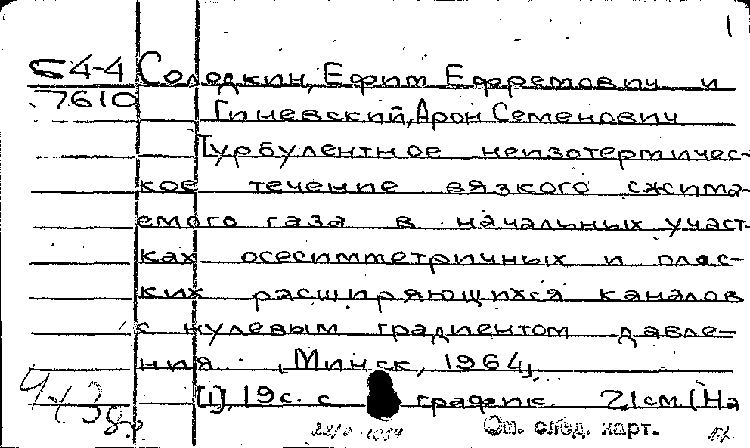 1
С4-4 Солодкин, Ефим Ефремович и
7610 Гиневский, Арон Семенович
Турбулентное неизотермичес-
кое течение вязкого сжима-
емого газа в начальных участ-
ках осесимметричных и плос-
ких расширяющихся каналов
с нулевым градиентом давле-
ния. Минск, 1964.
[1], 19 с. с график. 21 см. (На
См. след. карт.